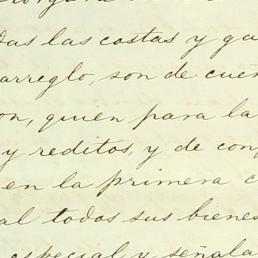 das las costas y ga
arreglo, son de cuen
on, quien para la
y reditos, y de conf
en la primera c
al todos sus bienes
especial y señala